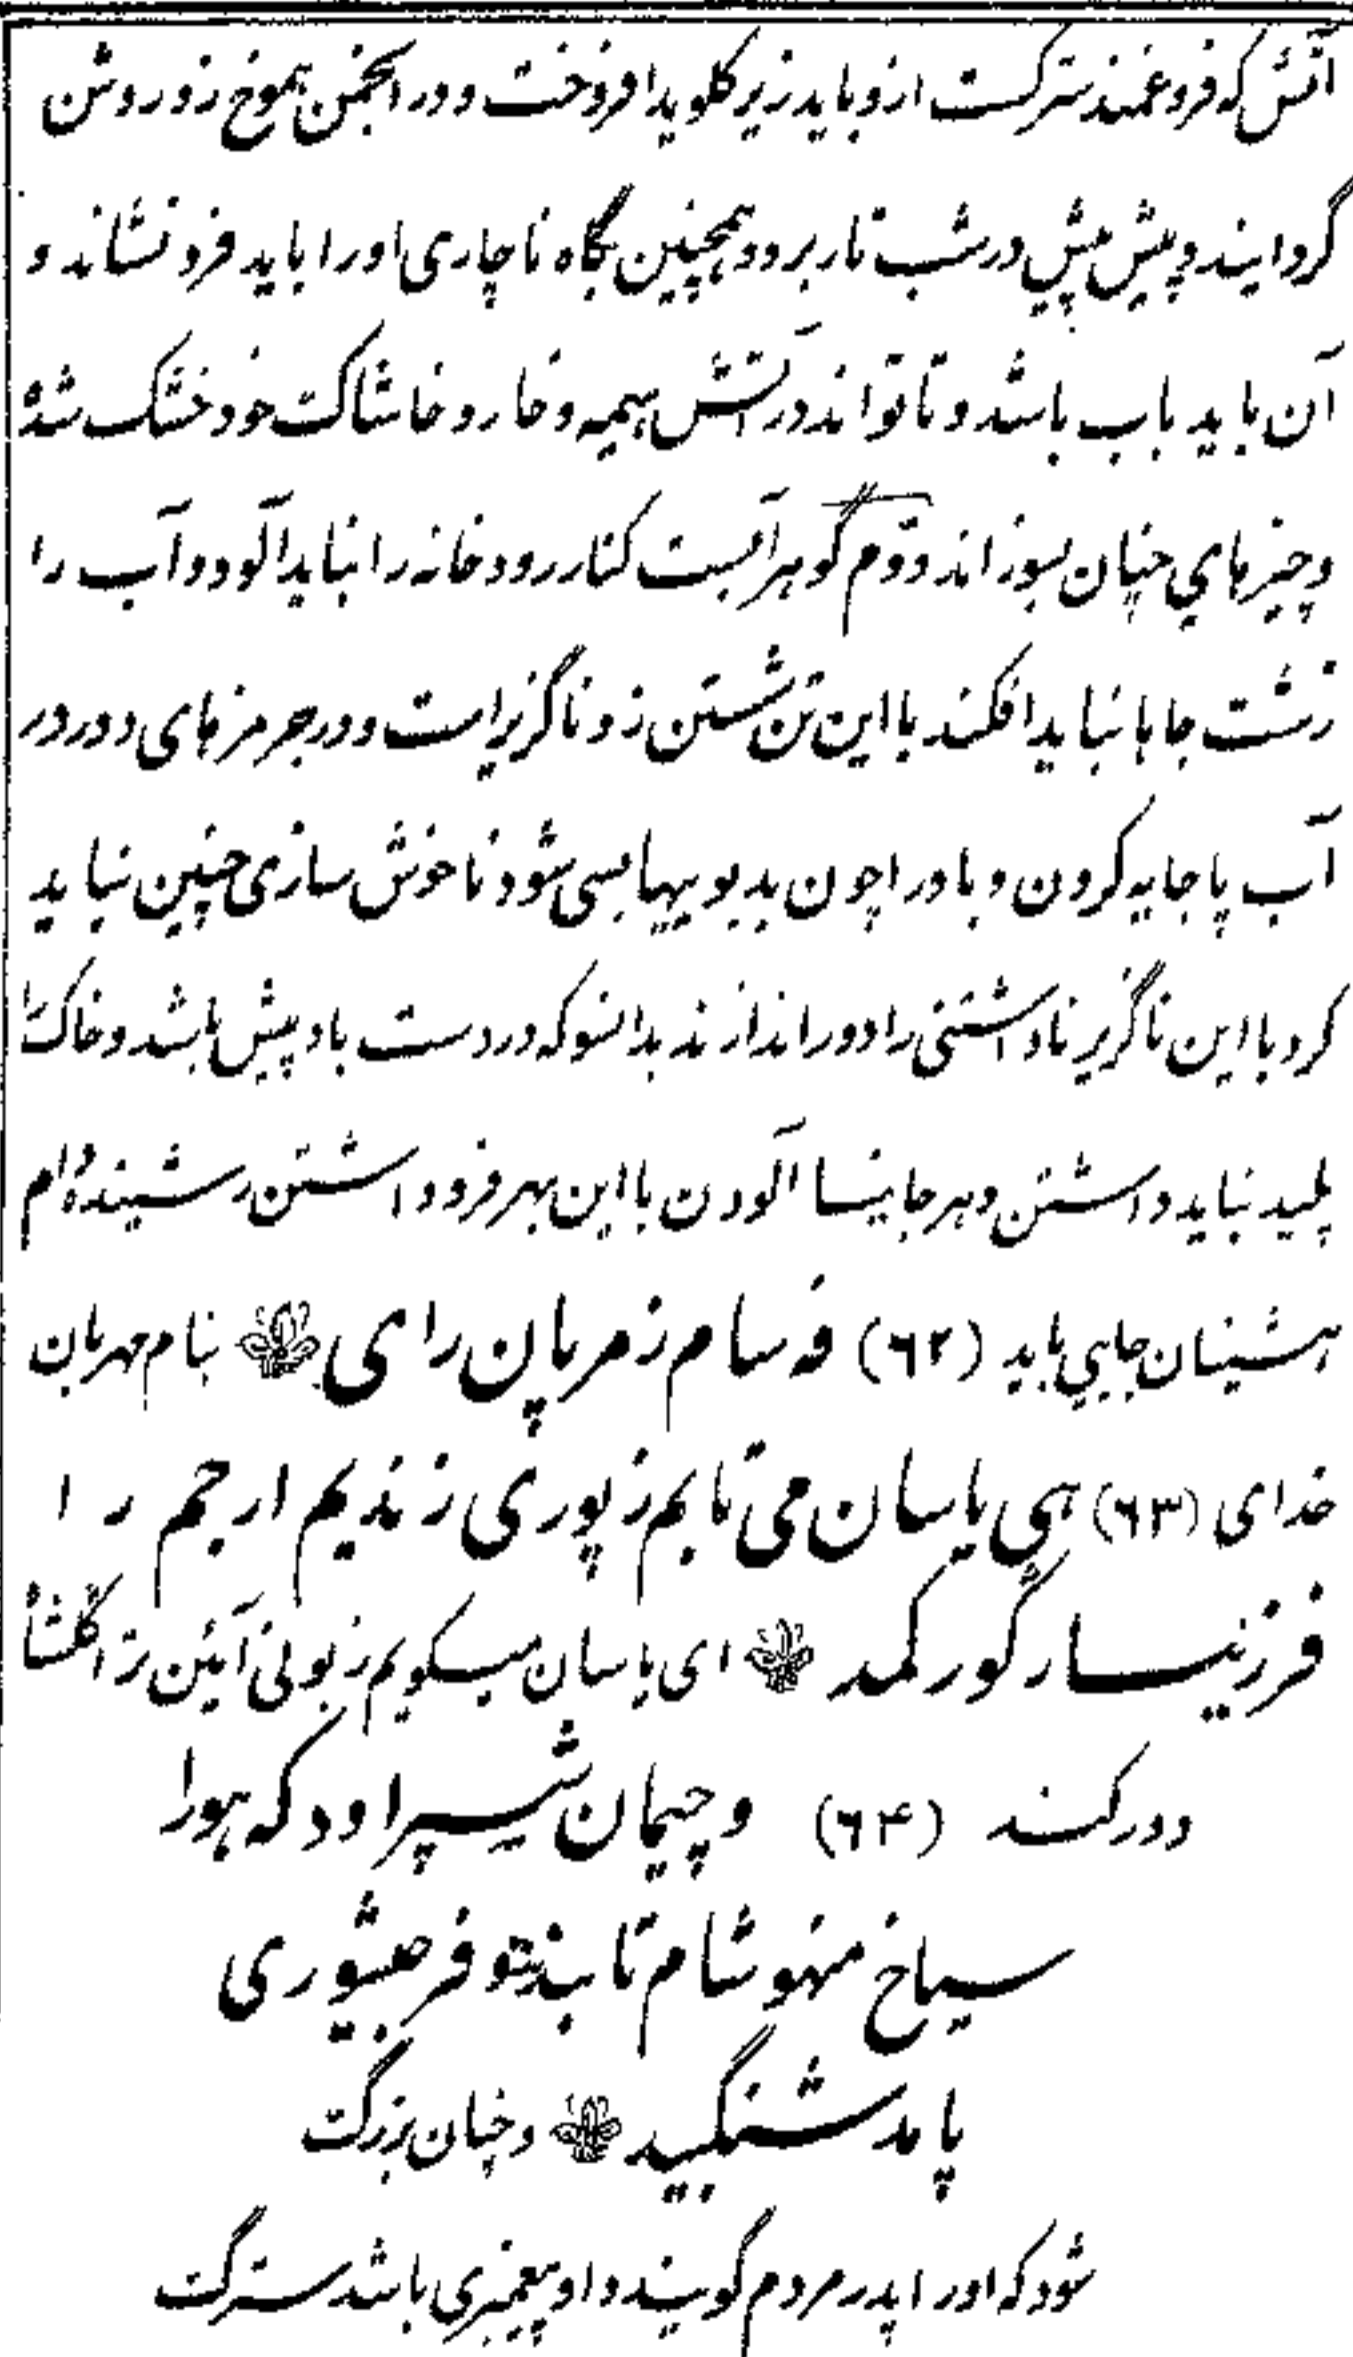 آتش که فروغمند سترگست ازو باید زیر کلوید افروخت و در انجمن بموغ زو روشن
گردانید و پیش پیش در شب تار برد و همچنین بگاه ناچاری او را باید فرو نشاند و
آن باید بآب باشد و تا تواند در آتش هیمه و خار و خاشاک خود خشک شده
و چیزهای چنان بسوزاند و دوم گوهر آبست کنار رودخانه را نباید آلود و آب را
زشت جاها نباید افکند با این تن شستن زو ناگزیر است و در جر مرزهای دور در
آب پا جایه کردن و باد را چون بدبوییها بسی شود ناخوش سازی چنین نباید
کرد با این ناگزیر ناداشتنی را دور اندازند بدانسو که در دست باد پیش باشد و خاک را
پلید نباید داشتن و هر جاییسا آلودن با این بهر فرو داشتن رشینده دام
هشینان جایی باید (۶۲) فه سام زمرپان رای بنام مهربان
خدای (۶۳) هی یاسان می تابم زپوری زندیم ارجم را
فرزیسار گور کمد ای یاسان میگویم زبونی آیین را گلشا
دور کند (۶۴) و چیمان شیپراود که هورا
سیماخ منهوشام تابند و فرجیشوری
پامد شنگید و چنان بزرگ
شود که او را پدر مردم گویند و او پیغمبری باشد سترگ